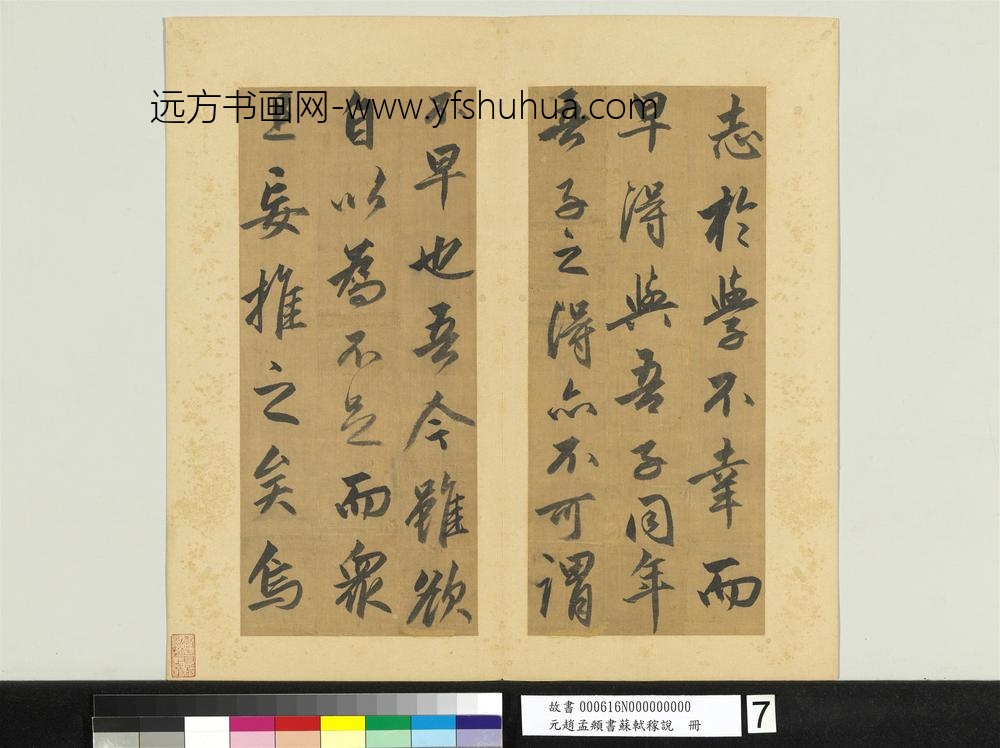 远方书画网-www.yfshuhua.com
志於學不幸而
早得與吾子同年
吾子之得亦不可謂
不早也吾今雖欲
自以為不足而眾
且妄推之矣烏
故書 000616N000000000
元趙孟頫書蘇軾稼說 冊
7